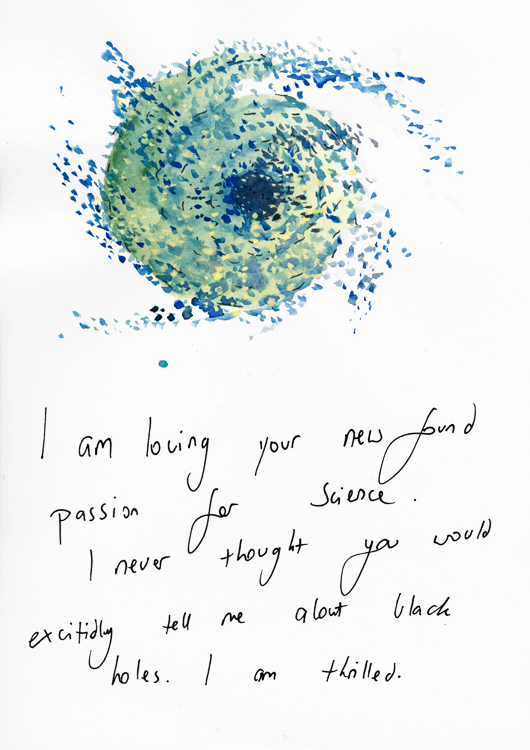 I am loving your new found
passion for science.
I never thought you would
excitidly tell me about black
holes. I am thrilled.